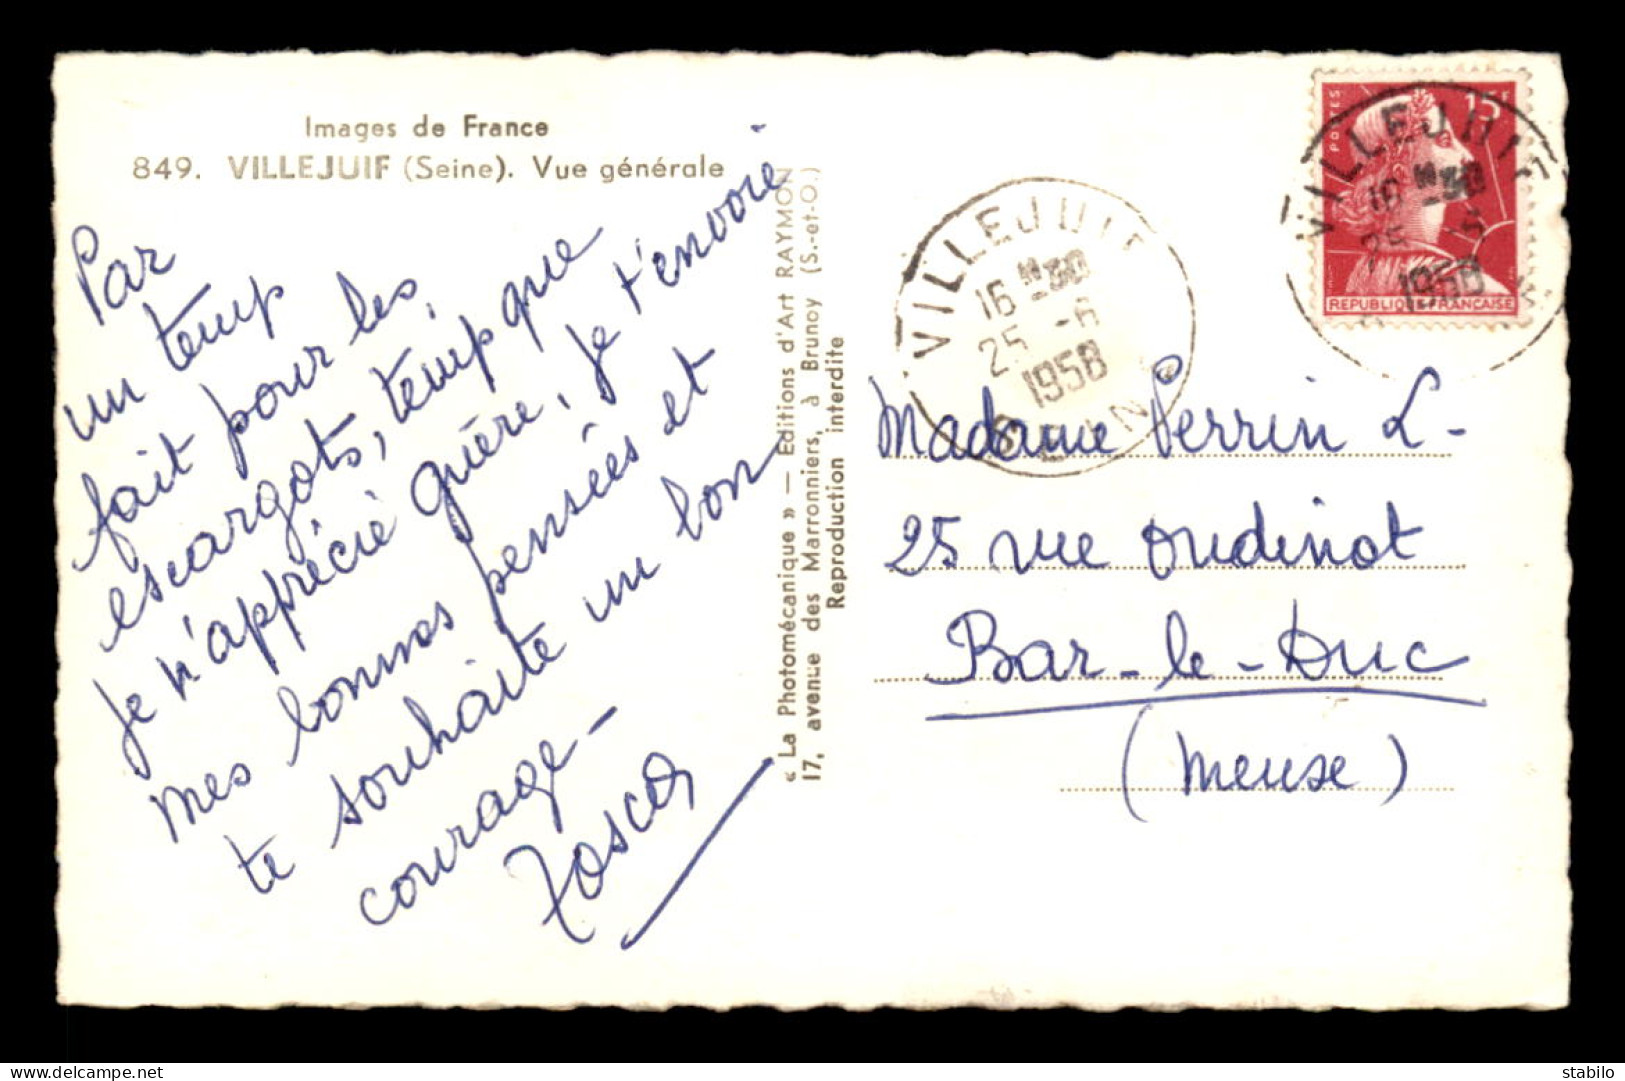 Images de France
849. VILLEJUIF (Seine). Vue générale
Par
un temp
fait pour les
escargots, temp que
je n'apprécie guère, je t'envoie
mes bonnes pensées et
te souhaite un bon
courage -
« La Photomécanique » — Editions d'Art RAYMON
17, avenue des Marronniers, à Brunoy (S.-et-O.)
Reproduction interdite
VILLEJUIF
16 H 30
25 -6
1958
SEINE
POSTES
15F
REPUBLIQUE FRANÇAISE
VILLEJUIF
16 H 30
25
1958
Madame Perrin L-
25 rue Oudinot
Bar-le-Duc
(Meuse)
Delcampe.net
stabilo